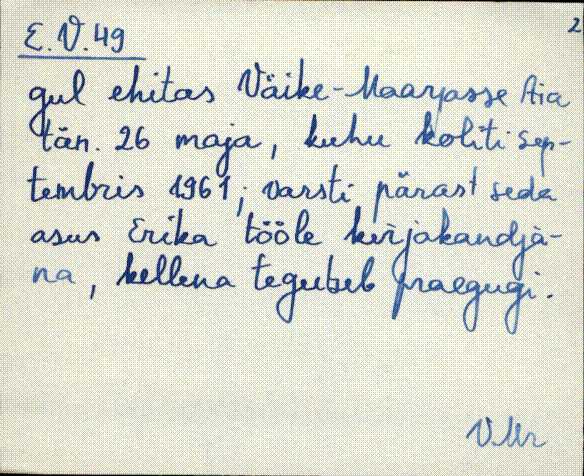 E.V.49
2
gul ehitas Väike-Maarjasse Aia
tän. 26 maja, kuhu koliti sep-
tembris 1961; varsti pärast seda
asus Erika tööle kirjakandja-
na, kellena tegutseb praegugi.